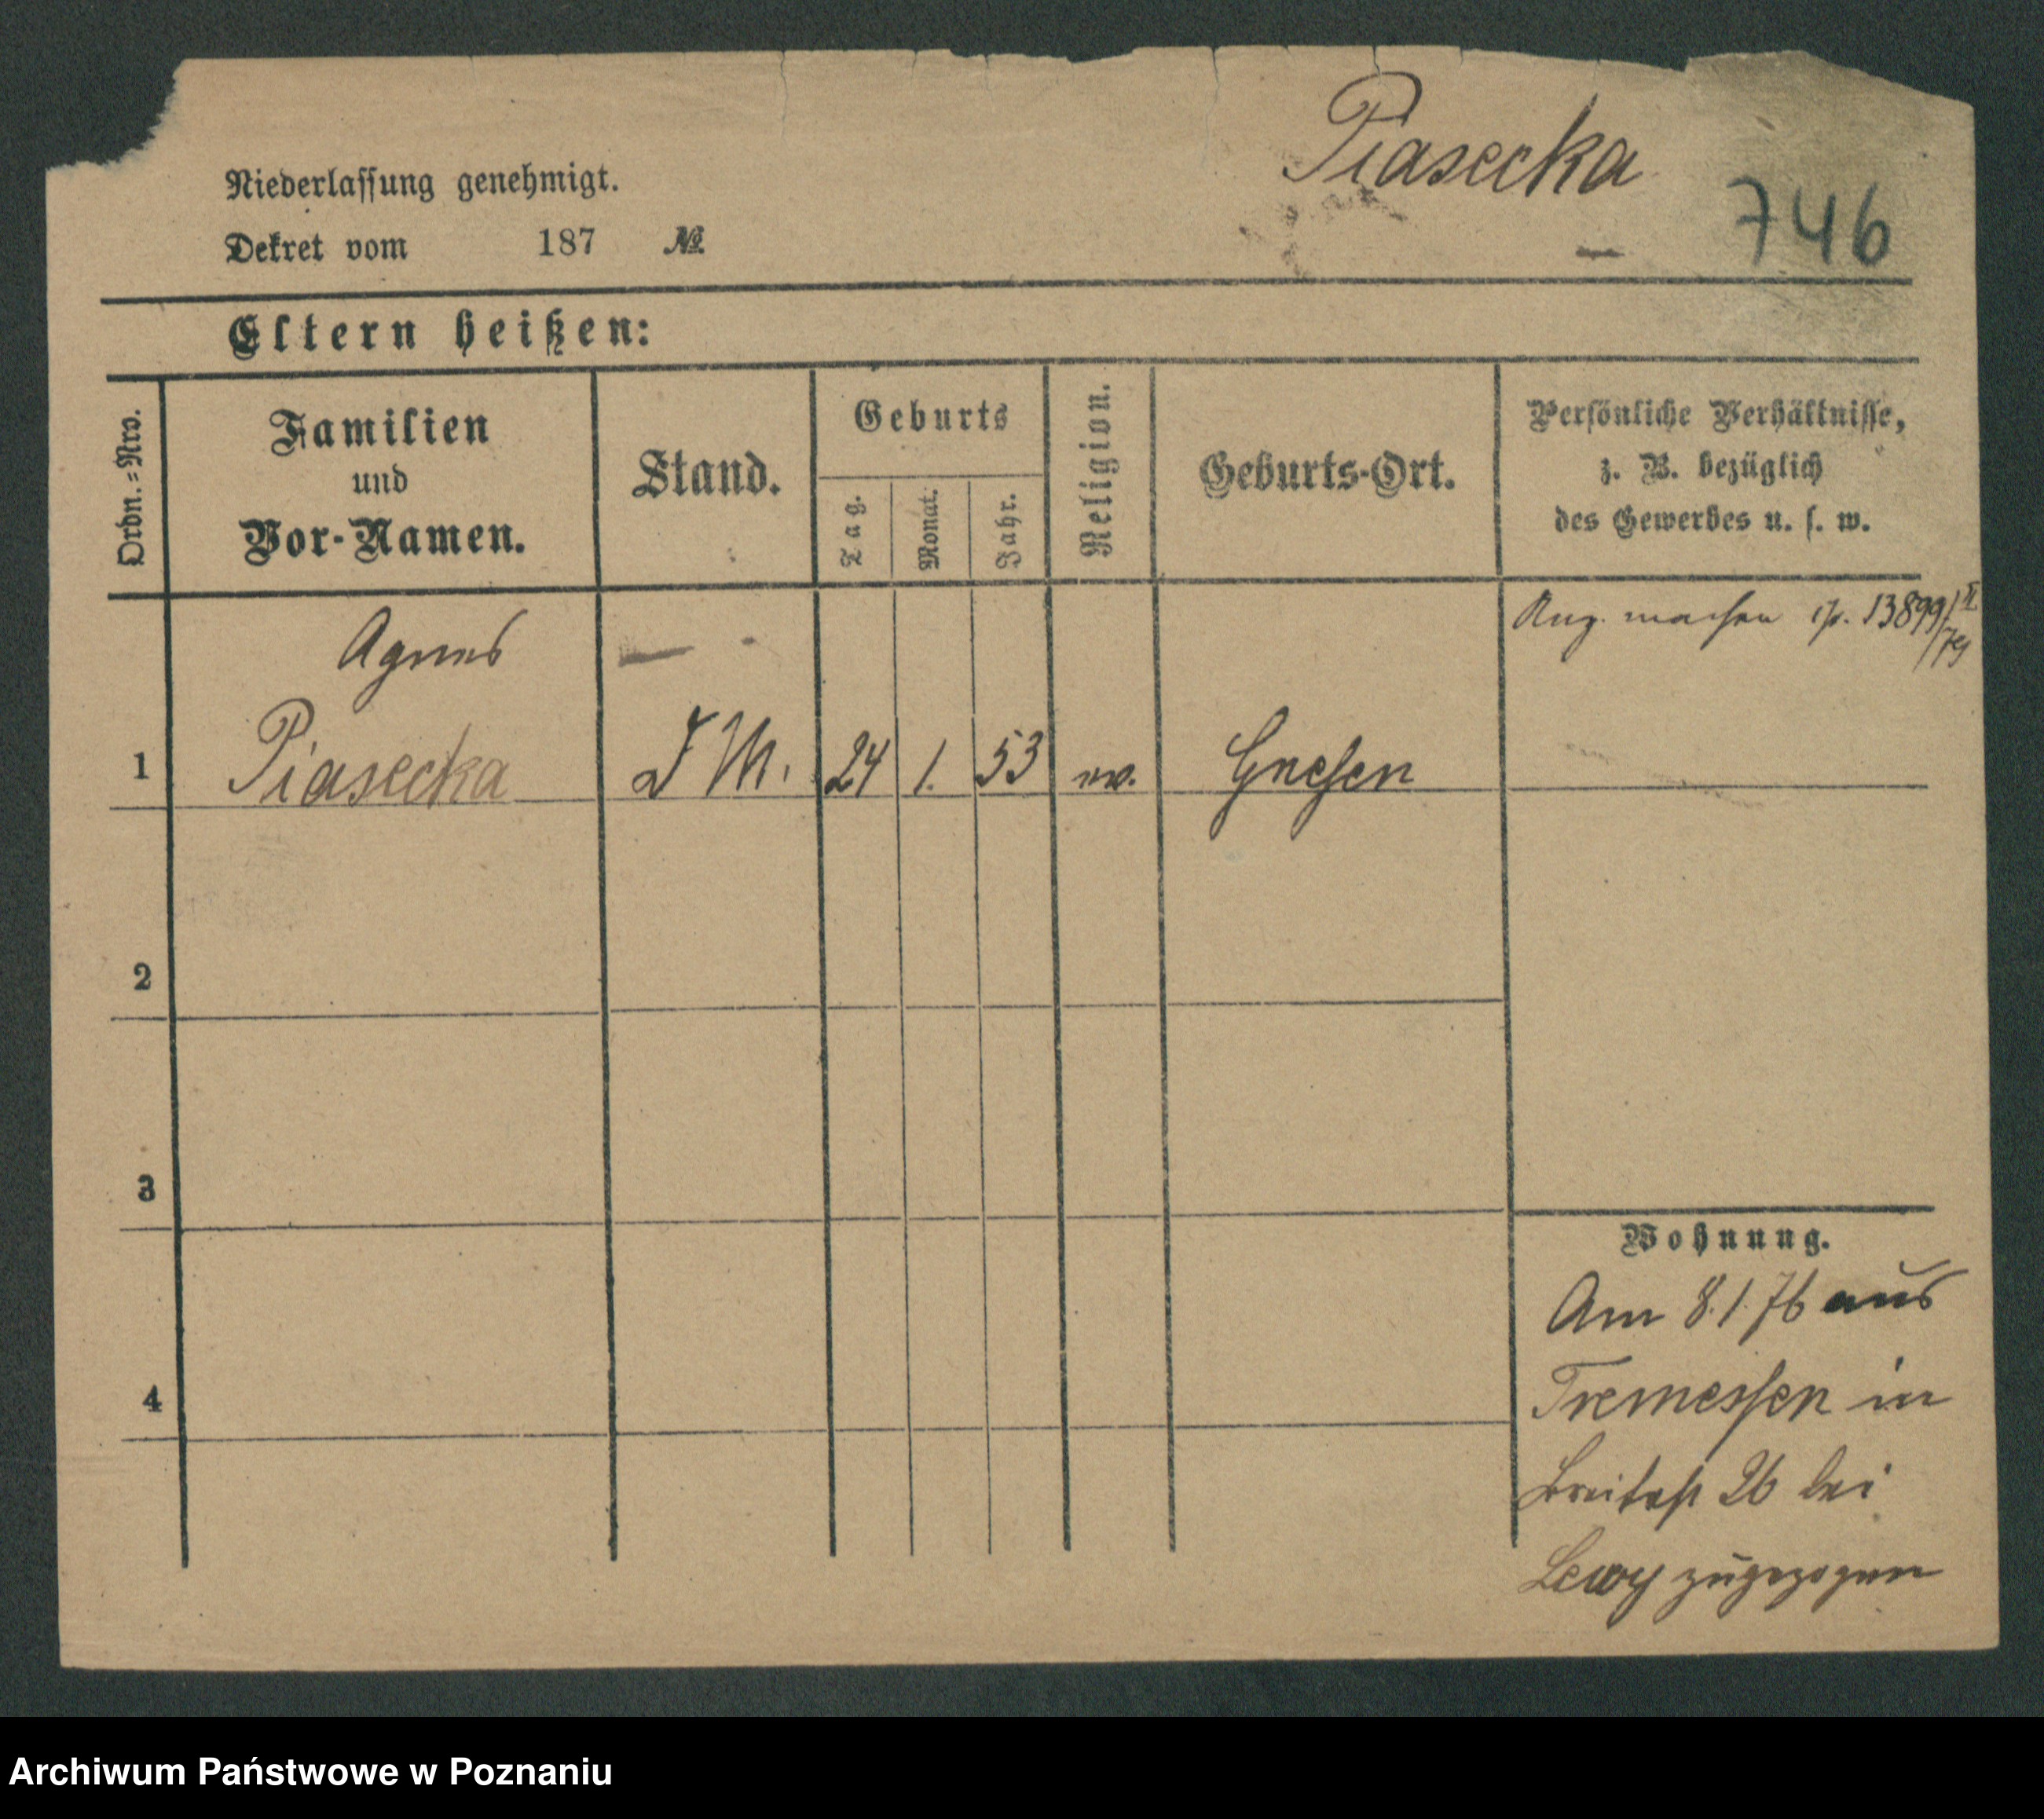 Piasecka
746
Niederlassung genehmigt.
Dekret vom 187 №
Eltern heißen:
Ordn.=Nro.
Familien
und
Vor-Namen.
Stand.
Geburts
Tag.
Monat.
Jahr.
Religion.
Geburts-Ort.
Persönliche Verhältnisse,
z. B. bezüglich
des Gewerbes u. s. w.
Agnes
13899/II
1 Piasecka D M. 24 1. 53 Gnesen
2
3
4
Wohnung.
Am 8.1.76 aus
Tremessen in
Breitestr 26 bei
Lewy zugezogen
Archiwum Państwowe w Poznaniu